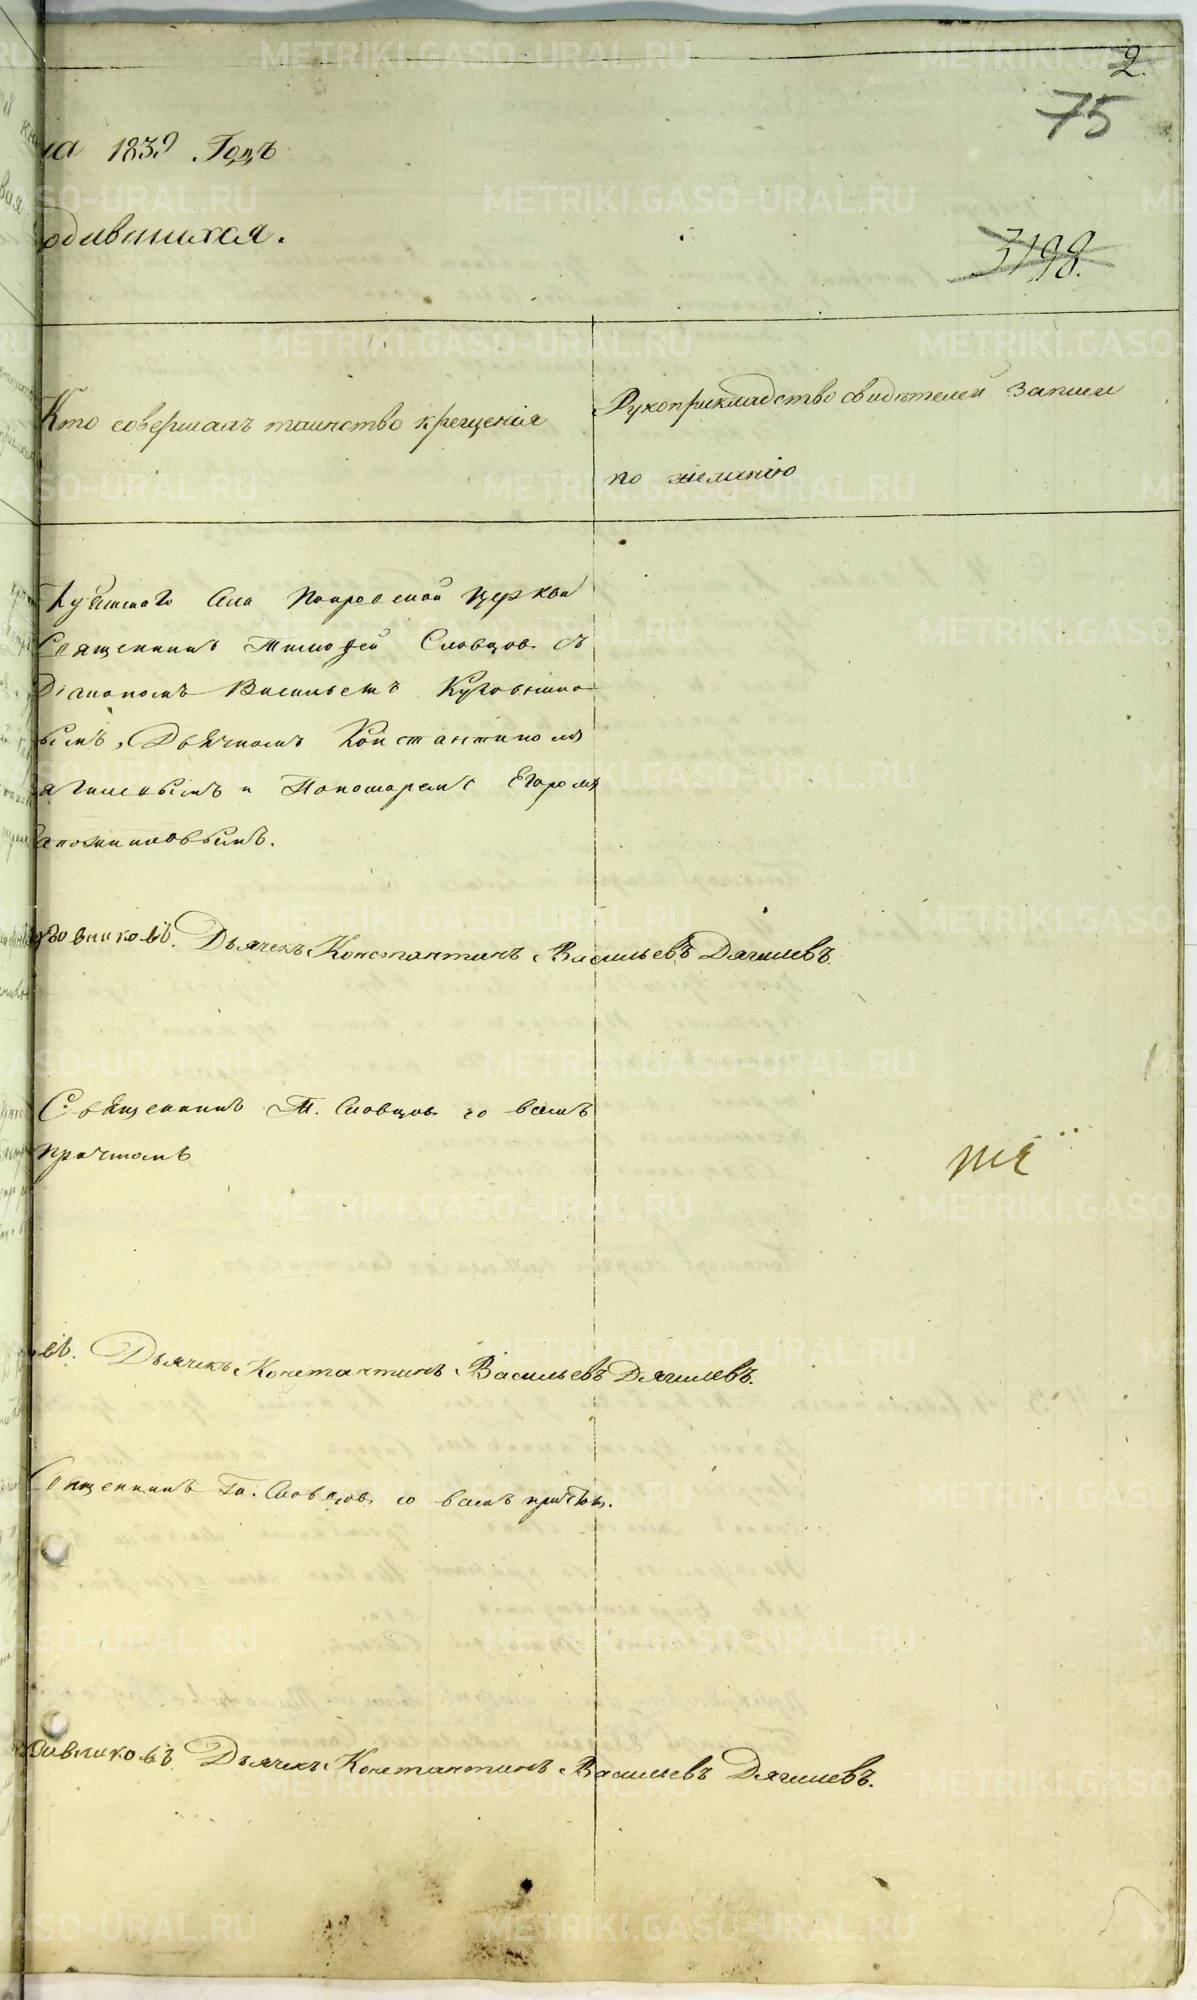 2.
75
на 1839 Годъ
одившихся.
3198.
Кто совершалъ таинство крещенія
Рукоприкладство свидѣтелей записи
по желанію
села Покровской церкви
Священникъ Тимофей Словцов съ
Діакономъ Васильемъ Кузовнико
вымъ, Дьячкомъ Константиномъ
ягилевымъ и Пономаремъ Егоромъ
апожниковымъ.
зовниковъ. Дьячекъ Константинъ Васильевъ Дягилевъ.
Священникъ Т. Словцов со всемъ
причтомъ
въ. Дьячекъ Константинъ Васильевъ Дягилевъ.
Священникъ Ти. Словцов со всемъ причтом.
овниковъ Дьячекъ Константинъ Васильевъ Дягилевъ.
METRIKI.GASO-URAL.RU